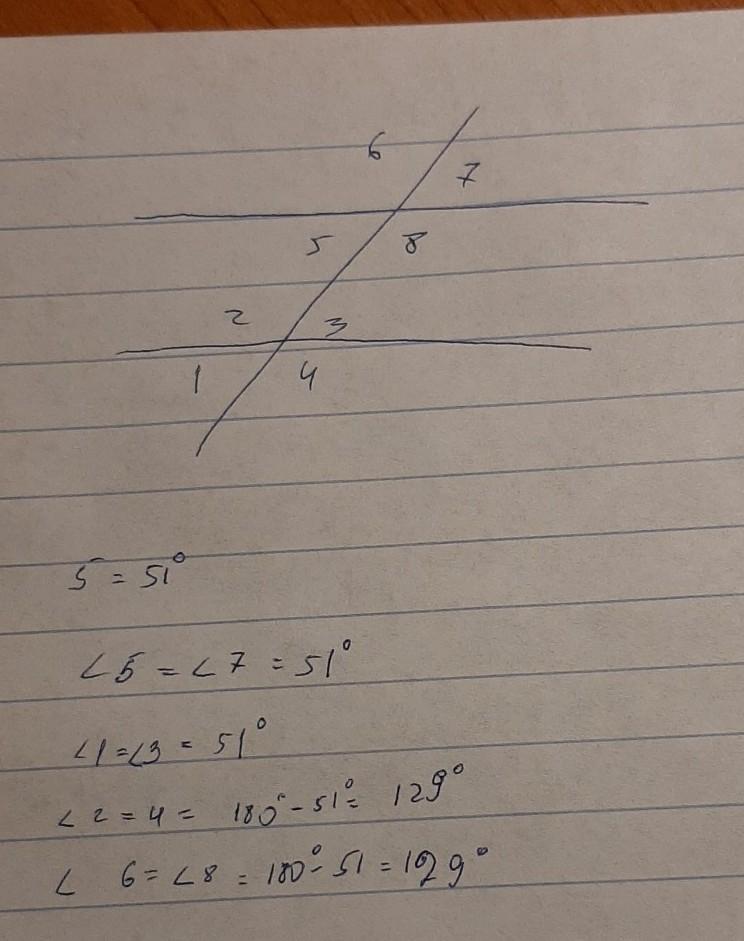 6
7
5 8
2 3
1 4
5 = 51°
∠5 = ∠7 = 51°
∠1=∠3 = 51°
∠2 = 4 = 180° - 51° = 129°
∠ 6 = ∠8 = 180° - 51 = 129°